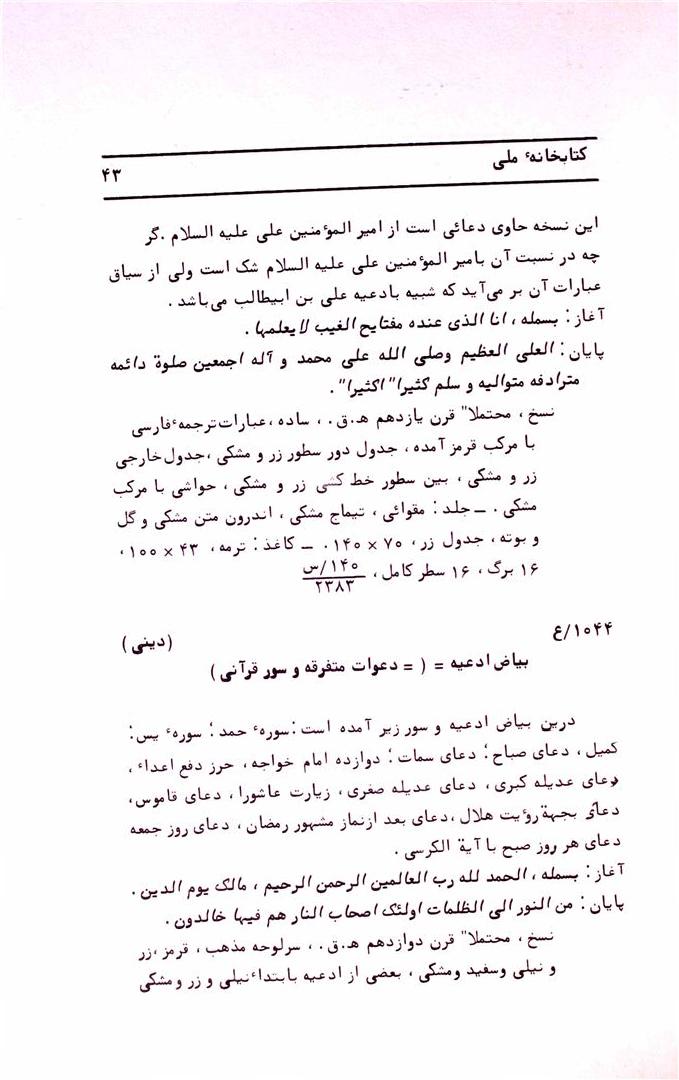 کتابخانهٔ ملی
۴۳
این نسخه حاوی دعائی است از امیر المؤمنین علی علیه السلام .گر
چه در نسبت آن بامیر المؤمنین علی علیه السلام شک است ولی از سیاق
عبارات آن بر می‌آید که شبیه بادعیه علی بن ابیطالب می‌باشد .
آغاز: بسمله ، انا الذی عنده مفتایح الغیب لایعلمها .
پایان: العلی العظیم وصلی الله علی محمد و آله اجمعین صلوة دائمه
مترادفه متوالیه و سلم کثیرا" اکثیرا" .
نسخ ، محتملا" قرن یازدهم هـ.ق . ، ساده ،عبارات ترجمهٔ فارسی
با مرکب قرمز آمده ، جدول دور سطور زر و مشکی ،جدول خارجی
زر و مشکی ، بین سطور خط کشی زر و مشکی ، حواشی با مرکب
مشکی . ــ جلد: مقوائی ، تیماج مشکی ، اندرون متن مشکی و گل
و بوته ، جدول زر ، ۷۰ × ۱۴۰ . ــ کاغذ: ترمه ، ۴۳ × ۱۰۰ ،
۱۶ برگ ، ۱۶ سطر کامل ، ۱۴۰/س
۲۳۸۳
۱۰۴۴/ع
(دینی)
بیاض ادعیه = ( = دعوات متفرقه و سور قرآنی)
درین بیاض ادعیه و سور زیر آمده است: سورهٔ حمد؛ سورهٔ یس:
کمیل ، دعای صباح؛ دعای سمات؛ دوازده امام خواجه ، حرز دفع اعداء ،
دعای عدیله کبری ، دعای عدیله صغری ، زیارت عاشورا ، دعای قاموس ،
دعای بجهة رؤیت هلال ،دعای بعد ازنماز مشهور رمضان ، دعای روز جمعه
دعای هر روز صبح با آیة الکرسی .
آغاز: بسمله ، الحمد لله رب العالمین الرحمن الرحیم ، مالک یوم الدین .
پایان: من النور الی الظلمات اولئک اصحاب النار هم فیها خالدون .
نسخ ، محتملا" قرن دوازدهم هـ.ق . ، سرلوحه مذهب ، قرمز ،زر
و نیلی وسفید ومشکی ، بعضی از ادعیه بابتداء نیلی و زر ومشکی